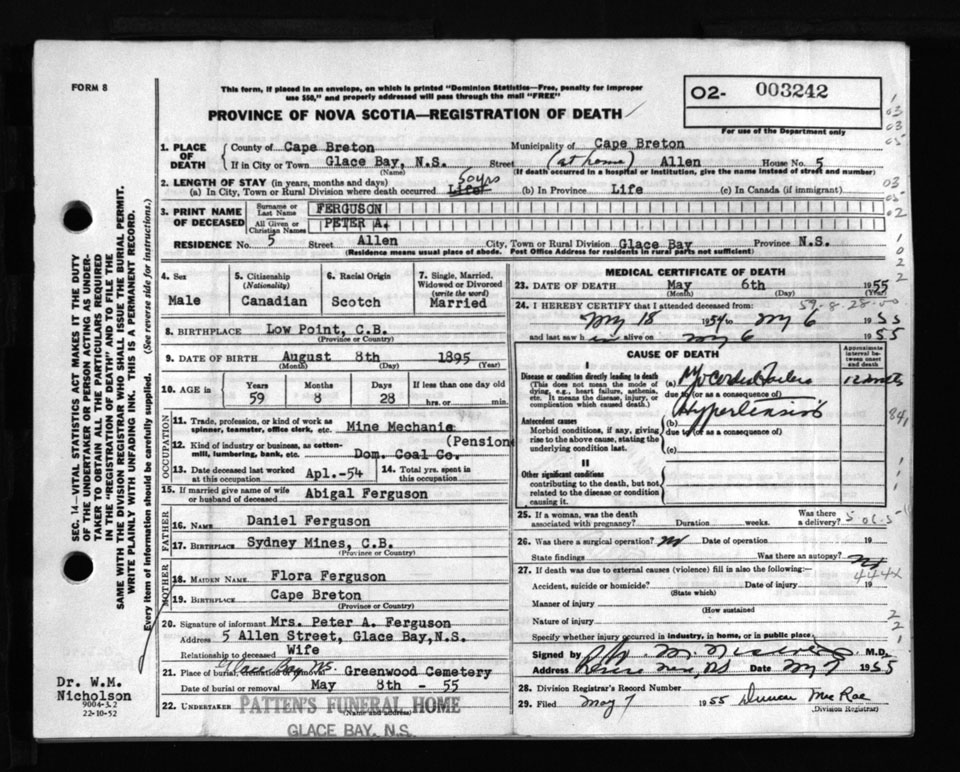 FORM 8
This form, if placed in an envelope, on which is printed "Dominion Statistics—Free, penalty for improper
use $50," and properly addressed will pass through the mail "FREE"
PROVINCE OF NOVA SCOTIA—REGISTRATION OF DEATH
O2- 003242
For use of the Department only
1. PLACE OF DEATH
County of Cape Breton Municipality of Cape Breton
If in City or Town Glace Bay, N.S. Street (at home) Allen House No. 5
(Name) (If death occurred in a hospital or institution, give the name instead of street and number)
2. LENGTH OF STAY (in years, months and days) 50yrs
(a) In City, Town or Rural Division where death occurred Life (b) In Province Life (c) In Canada (if immigrant)
3. PRINT NAME OF DECEASED
Surname or Last Name FERGUSON
All Given or Christian Names PETER A.
RESIDENCE No. 5 Street Allen City, Town or Rural Division Glace Bay Province N.S.
(Residence means usual place of abode. Post Office Address for residents in rural parts not sufficient)
4. Sex Male
5. Citizenship (Nationality) Canadian
6. Racial Origin Scotch
7. Single, Married, Widowed or Divorced (write the word) Married
8. BIRTHPLACE Low Point, C.B.
(Province or Country)
9. DATE OF BIRTH August 8th 1895
(Month) (Day) (Year)
10. AGE in Years Months Days If less than one day old
59 8 28 hrs. or min.
OCCUPATION
11. Trade, profession, or kind of work as spinner, teamster, office clerk, etc. Mine Mechanic
(Pension
12. Kind of industry or business, as cotton-mill, lumbering, bank, etc. Dom. Coal Co.
13. Date deceased last worked at this occupation Apl.-54
14. Total yrs. spent in this occupation
15. If married give name of wife or husband of deceased Abigal Ferguson
FATHER
16. NAME Daniel Ferguson
17. BIRTHPLACE Sydney Mines, C.B.
(Province or Country)
MOTHER
18. MAIDEN NAME Flora Ferguson
19. BIRTHPLACE Cape Breton
(Province or Country)
20. Signature of informant Mrs. Peter A. Ferguson
Address 5 Allen Street, Glace Bay, N.S.
Relationship to deceased Wife
Glace Bay NS.
21. Place of burial, cremation or removal Greenwood Cemetery
Date of burial or removal May 8th - 55
22. UNDERTAKER PATTEN'S FUNERAL HOME
(Name and address)
GLACE BAY, N.S.
MEDICAL CERTIFICATE OF DEATH
23. DATE OF DEATH May 6th 1955
(Month) (Day)
59-8-28-
24. I HEREBY CERTIFY that I attended deceased from:
My 18 1954 to My 6 1955
and last saw him alive on My 6 1955
CAUSE OF DEATH
Approximate interval between onset and death
I
Disease or condition directly leading to death
(This does not mean the mode of dying, e.g., heart failure, asthenia, etc. It means the disease, injury, or complication which caused death.)
(a)
due to (or as a consequence of)
Antecedent causes
Morbid conditions, if any, giving rise to the above cause, stating the underlying condition last.
(b) Hypertension
due to (or as a consequence of)
(c)
II
Other significant conditions
contributing to the death, but not related to the disease or condition causing it.
25. If a woman, was the death associated with pregnancy? Duration weeks. Was there a delivery?
26. Was there a surgical operation? No Date of operation 19
State findings Was there an autopsy? No
27. If death was due to external causes (violence) fill in also the following:—
444X
Accident, suicide or homicide? Date of injury 19
(State which)
Manner of injury
(How sustained
Nature of injury
Specify whether injury occurred in industry, in home, or in public place.
Signed by M.D.
Address Date My 7 1955
28. Division Registrar's Record Number
29. Filed May 7 1955 Duncan McRae
(Division Registrar)
SEC. 14—VITAL STATISTICS ACT MAKES IT THE DUTY
OF THE UNDERTAKER OR PERSON ACTING AS UNDER-
TAKER TO OBTAIN ALL THE PARTICULARS REQUIRED
IN THE "REGISTRATION OF DEATH" AND TO FILE THE
SAME WITH THE DIVISION REGISTRAR WHO SHALL ISSUE THE BURIAL PERMIT.
WRITE PLAINLY WITH UNFADING INK. THIS IS A PERMANENT RECORD.
Every item of information should be carefully supplied. (See reverse side for instructions.)
Dr. W.M.
Nicholson
9004-3.2
22-10-52